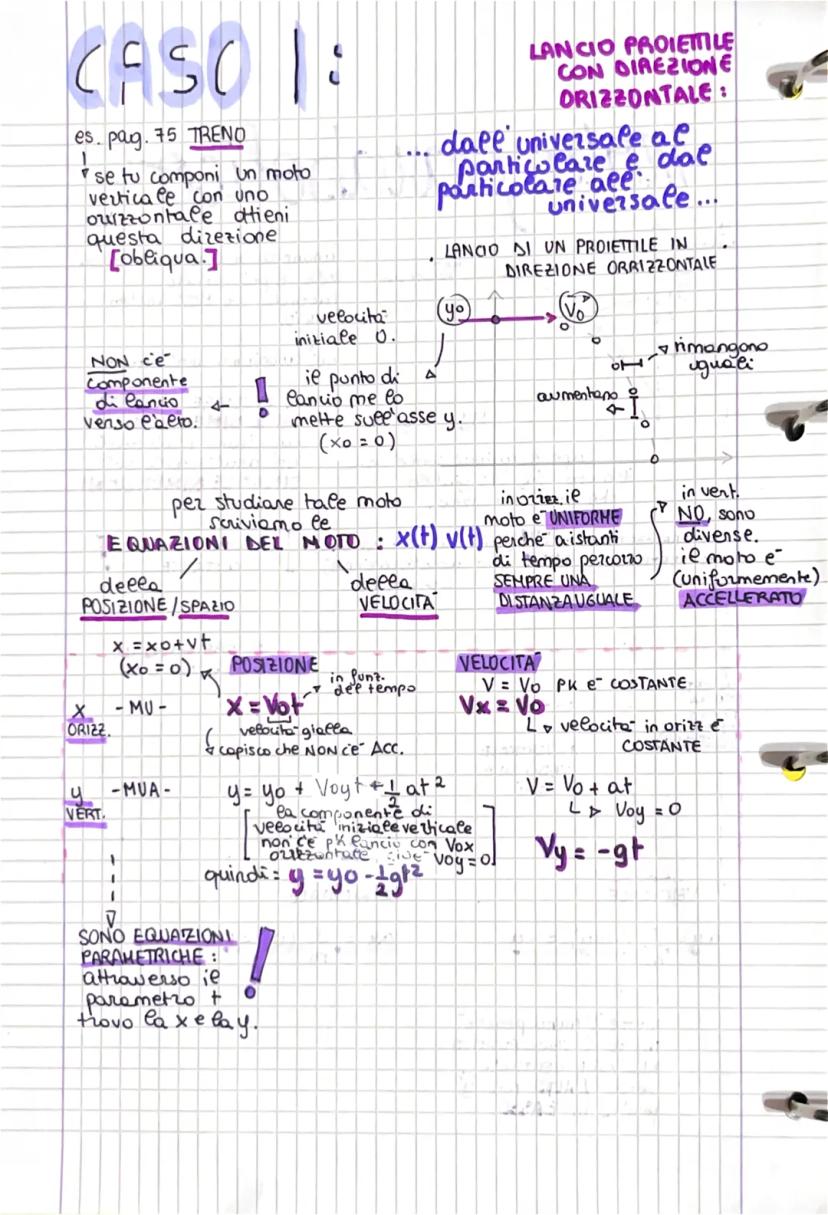 CASO 1:
LANCIO PROIETTILE
CON DIREZIONE
ORIZZONTALE:
es. pag. 75 TRENO
se tu componi un moto
verticale con uno
orizzontale ottieni
questa direzione
[obliqua.]
... dall' universale al
particolare e dal
particolare all'
universale...
. LANCIO DI UN PROIETTILE IN .
DIREZIONE ORRIZZONTALE
velocità
iniziale 0.
yo
Vo
rimangono
uguali
aumentano
il punto di
lancio me lo
mette sull'asse y.
(xo = 0)
!
NON c'è
componente
di lancio
verso l'alto.
per studiare tale moto
scriviamo le
EQUAZIONI DEL MOTO: x(t) v(t)
della
POSIZIONE/SPAZIO
della
VELOCITÀ
in orizz. il
moto è UNIFORME
perchè a istanti
di tempo percorro
SEMPRE UNA
DISTANZA UGUALE
in vert.
NO, sono
diverse.
il moto è
(uniformemente)
ACCELLERATO
x = xo+vt
(xo = 0)
POSIZIONE
in funz.
del tempo
x - MU -
ORIZZ.
x = Vot
velocità gialla
capisco che NON c'è ACC.
VELOCITÀ
V = Vo PK è COSTANTE
Vx = Vo
velocità in orizz è
COSTANTE
y -MUA-
VERT.
y = yo + Voyt + 1/2 at²
[la componente di
velocità iniziale verticale
non c'è pk lancio con Vox
orizzontale Voy=0]
quindi: y = yo - 1/2 gt²
V = Vo + at
Voy = 0
Vy = -gt
SONO EQUAZIONI
PARAMETRICHE:
attraverso il
parametro t
trovo la x e la y.
!